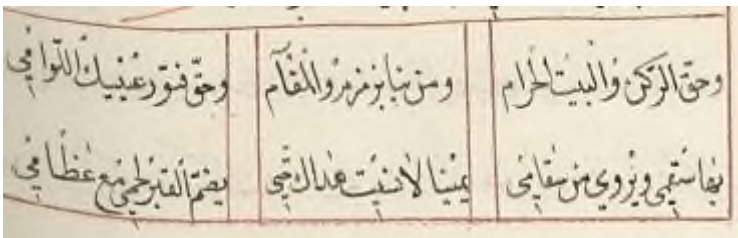 وحق الركن والبيت الحرام ومن بزمزم والمقام وحق فتور عينيك اللواتي
بها سقمي ويروي من سقامي يمينا لا نسيت حتي يضم القبر لحمي مع عظامي